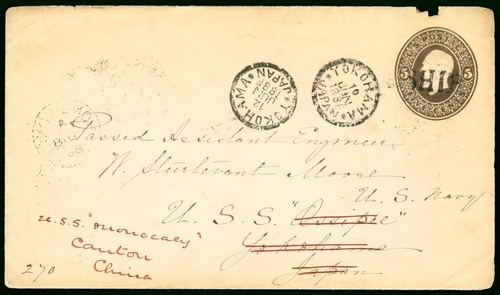 YOKOHAMA JAPAN 12 JUN
YOKOHAMA JAPAN 10 JUN
5 5
Passed Assistant Engineer
W. Sturtevant Moore
U. S. Navy
U. S. S. "Ossipee"
Yokohama
Japan
U.S.S. "Monocacy"
Canton
China
270